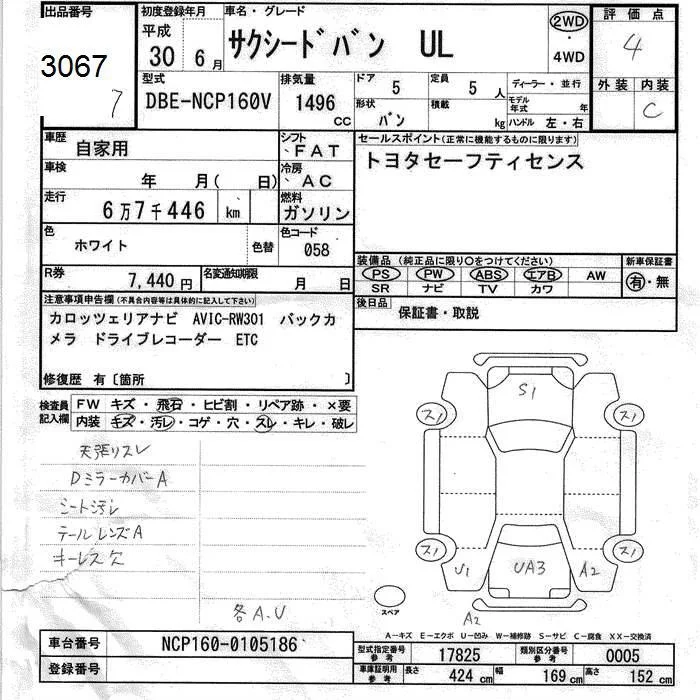 出品番号 初度登録年月 車名・グレード 評価点
3067 平成 30 6月 サクシードバン UL 2WD 4WD 4
7 型式 DBE-NCP160V 排気量 1496 CC ドア 5 定員 5人 ディーラー・並行 外装 内装 C
形状 バン 積載 kg モデル年式 年 ハンドル 左・右
車歴 自家用 シフト FAT セールスポイント(正常に機能するものに限ります)
車検 年 月( 日) 冷房 AC トヨタセーフティセンス
走行 6万7千446 km 燃料 ガソリン
色 ホワイト 色替 色コード 058
装備品 (純正品に限り○をつけてください) 新車保証書
R券 7,440円 名変通知期限 月 日 PS PW ABS エアB AW 有・無
SR ナビ TV カワ
注意事項申告欄(不具合内容等は具体的に記入して下さい) 後日品 保証書・取説
カロッツェリアナビ AVIC-RW301 バックカ
メラ ドライブレコーダー ETC
修復歴 有〔箇所 〕
検査員記入欄 FW キズ・飛石・ヒビ割・リペア跡・×要
内装 キズ・汚レ・コゲ・穴・スレ・キレ・破レ
S1
ス1 ス1
天張りスレ
DミラーカバーA
シート汚レ
テールレンズA
キーレス欠
ス1 ス1
U1 UA3 A2
スペア
各A.U A2
A-キズ E-エクボ U-凹み W-補修跡 S-サビ C-腐食 XX-交換済
車台番号 NCP160-0105186 型式指定番号 参考 17825 類別区分番号 参考 0005
登録番号 車庫証明用 参考 長さ 424cm 幅 169cm 高さ 152cm